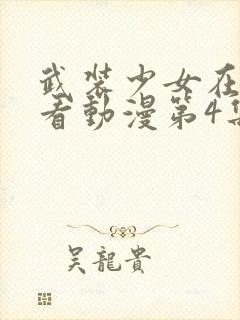 武装少女在
看動漫第4集
吴龍貴